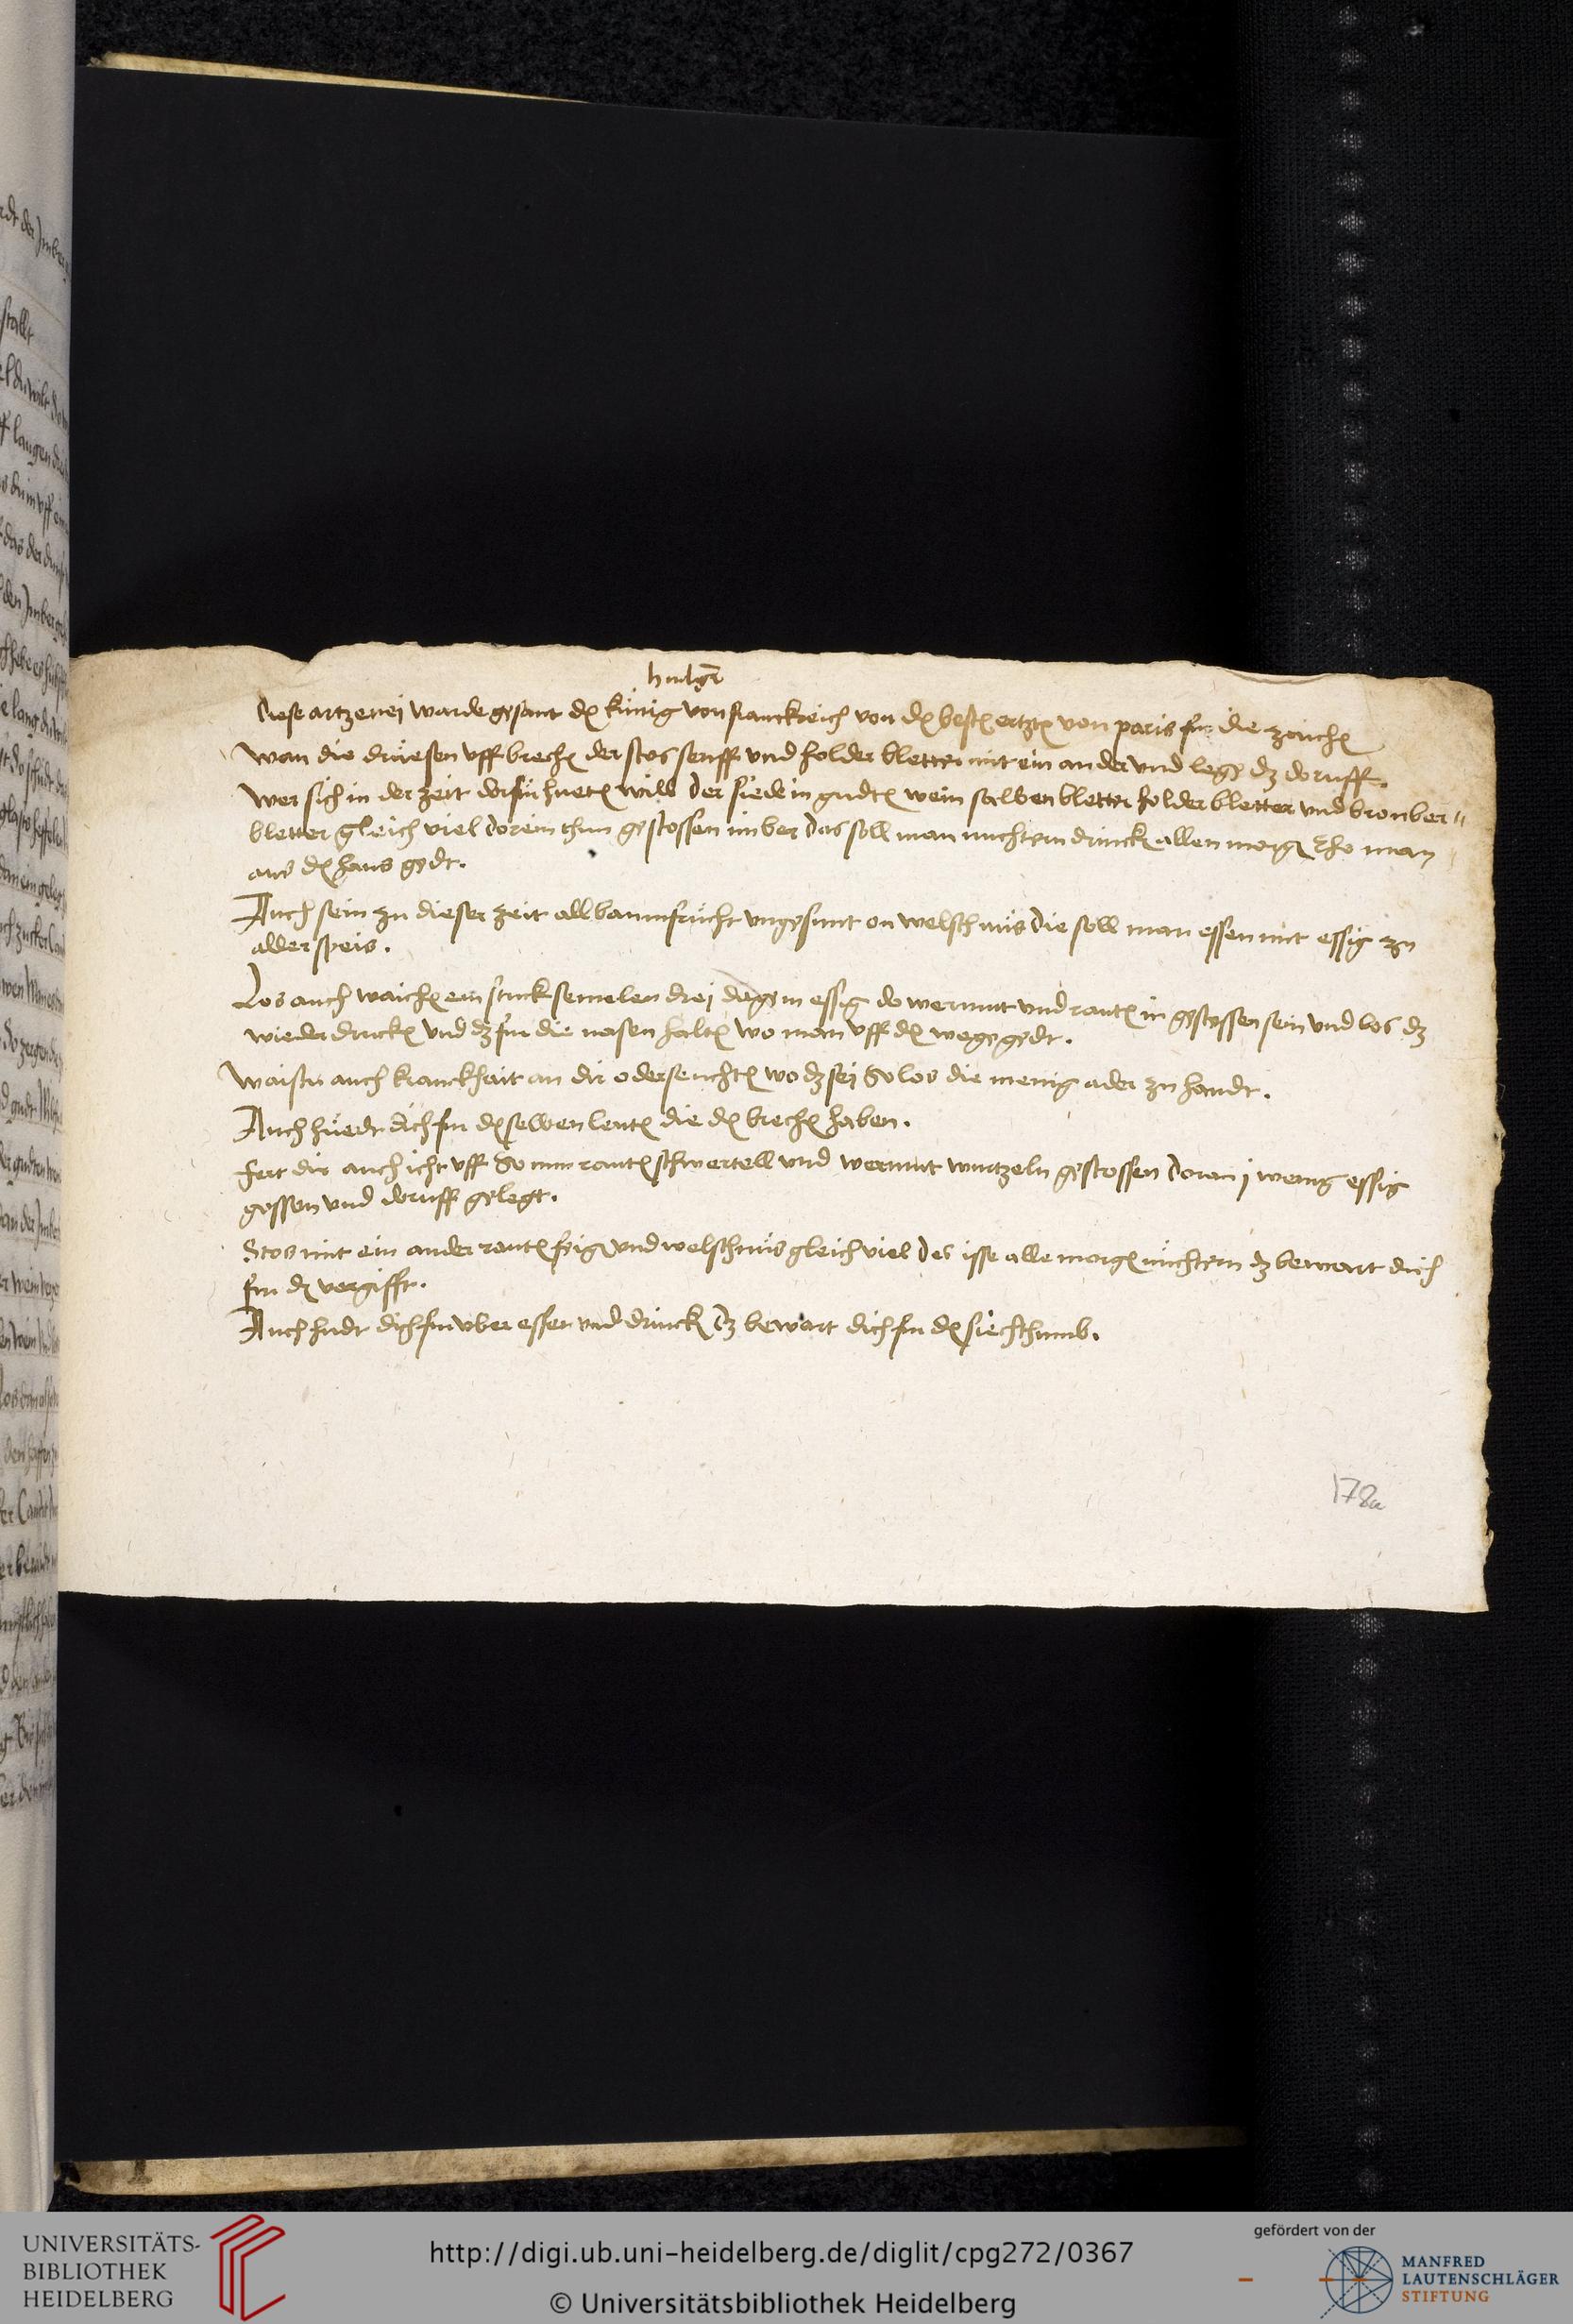 Diese artzeneÿ warde gesant dē kunig von franckreich von dē bestē ertztē von paris fur die zaichē
wan die druesen vff brechē der stos senff vnd holder bletter mit ein ander vnd lege dz doruff.
Wer sich in der zeit dorfur huetē will Der siede in gudtē wein salben bletter holder bletter vnd bronber"
bletter gleich viel dorein thun gestossen imber das soll man nuchtern drinckē allen morgē Ehe man
aus dē haus gedt.
Auch sein zu dieser zeit all baumfrucht vngesunt on welschnus die soll man essen mit essig zu
aller speis.
Los auch waichē ein stuck semelen dreÿ dage in essig do wermut vnd rautē in gestossen sein vnd los dz
wieder druckē vnd dz fur die nasen haltē wo man vff dē wege gedt.
Waistu auch kranckhait an dir oder seuchtē wo dz seÿ So los die menig ader zu handt.
Auch huedt dich fur dē selben leutē die dē brechē haben.
Fert dir auch icht vff So nim rautē schwertell vnd wermut wurtzeln gestossen Doran j wenig essig
gossen vnd doruff gelegt.
Stos mit ein ander rautē feigē vnd welschnus gleich viel Des isse alle morgē nuchtern dz bewart dich
fur dē vergifft.
Auch hudt dich fur vber essen vnd drinckē Dz bewart dich fur dē siechthumb.
178a
UNIVERSITÄTS-
BIBLIOTHEK
HEIDELBERG
http://digi.ub.uni-heidelberg.de/diglit/cpg272/0367
© Universitätsbibliothek Heidelberg
gefördert von der
MANFRED
LAUTENSCHLÄGER
STIFTUNG